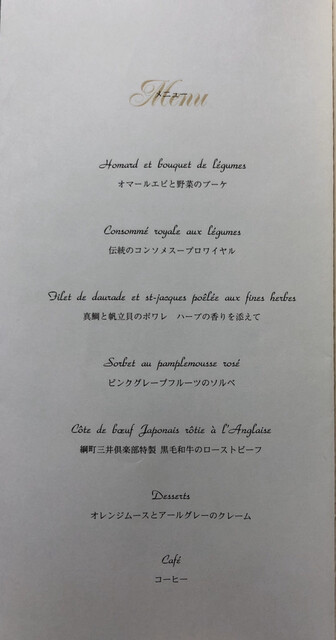 Menu
メニュー
Homard et bouquet de légumes
オマールエビと野菜のブーケ
Consommé royale aux légumes
伝統のコンソメスープロワイヤル
Filet de daurade et st-jacques poêlée aux fines herbes
真鯛と帆立貝のポワレ　ハーブの香りを添えて
Sorbet au pamplemousse rosé
ピンクグレープフルーツのソルベ
Côte de bœuf Japonais rôtie à l'Anglaise
綱町三井倶楽部特製 黒毛和牛のローストビーフ
Desserts
オレンジムースとアールグレーのクレーム
Café
コーヒー